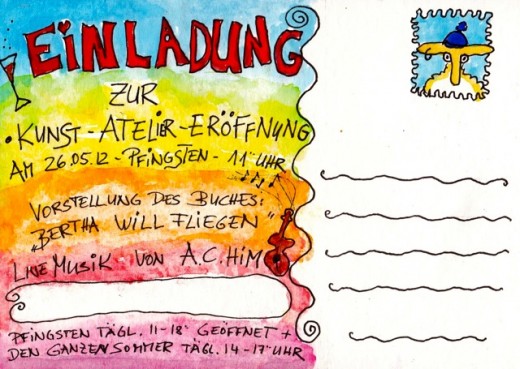 EINLADUNG
ZUR
KUNST-ATELIER-ERÖFFNUNG
AM 26.05.12 - PFINGSTEN - 11°° UHR
VORSTELLUNG DES BUCHES:
„BERTHA WILL FLIEGEN"
LIVE MUSIK VON A.C. HIM
PFINGSTEN TÄGL. 11-18° GEÖFFNET +
DEN GANZEN SOMMER TÄGL. 14-17°° UHR